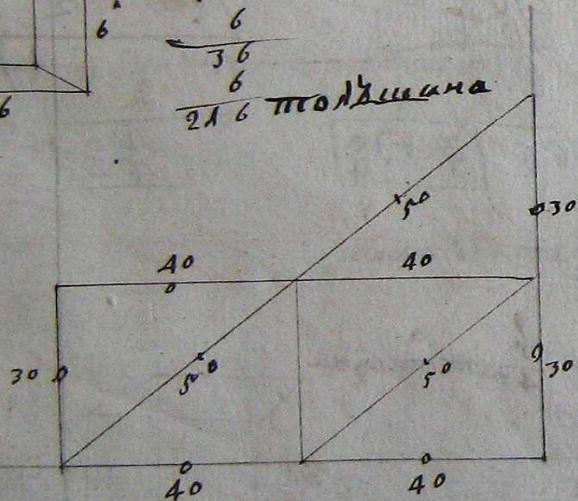 6
6
36
6
6
216 толъшина
50
30
40 40
30 50 50 30
40 40